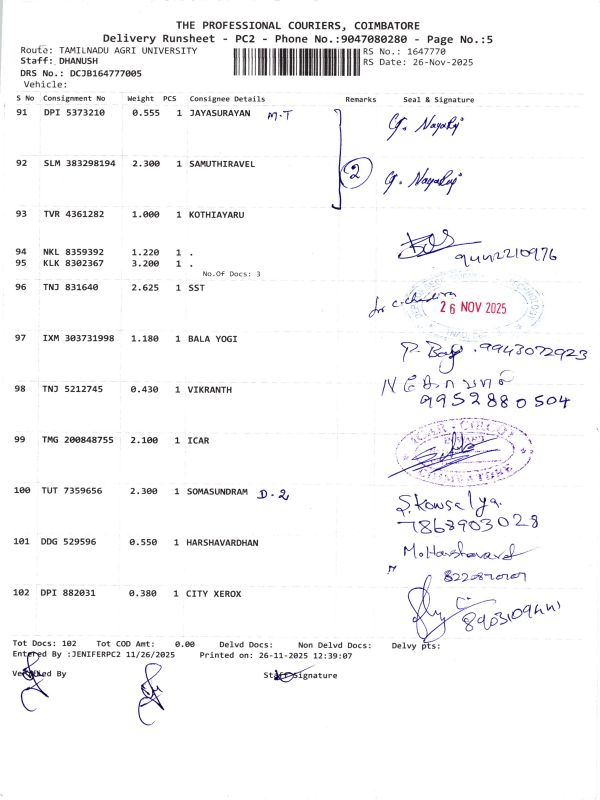 THE PROFESSIONAL COURIERS, COIMBATORE
Delivery Runsheet - PC2 - Phone No.:9047080280 - Page No.:5
Route: TAMILNADU AGRI UNIVERSITY RS No.: 1647770
Staff: DHANUSH RS Date: 26-Nov-2025
DRS No.: DCJB164777005
Vehicle:
S No Consignment No Weight PCS Consignee Details Remarks Seal & Signature
91 DPI 5373210 0.555 1 JAYASURAYAN M.T
92 SLM 383298194 2.300 1 SAMUTHIRAVEL 2
93 TVR 4361282 1.000 1 KOTHIAYARU
94 NKL 8359392 1.220 1 .
9442210976
95 KLK 8302367 3.200 1 .
No.Of Docs: 3
96 TNJ 831640 2.625 1 SST
26 NOV 2025
97 IXM 303731998 1.180 1 BALA YOGI
9943072923
98 TNJ 5212745 0.430 1 VIKRANTH
9952880504
99 TMG 200848755 2.100 1 ICAR
COIMBATORE
100 TUT 7359656 2.300 1 SOMASUNDRAM D-2
S.Kowsalya.
7868903028
101 DDG 529596 0.550 1 HARSHAVARDHAN
102 DPI 882031 0.380 1 CITY XEROX
Tot Docs: 102 Tot COD Amt: 0.00 Delvd Docs: Non Delvd Docs: Delvy pts:
Entered By :JENIFERPC2 11/26/2025 Printed on: 26-11-2025 12:39:07
Verified By Staff Signature